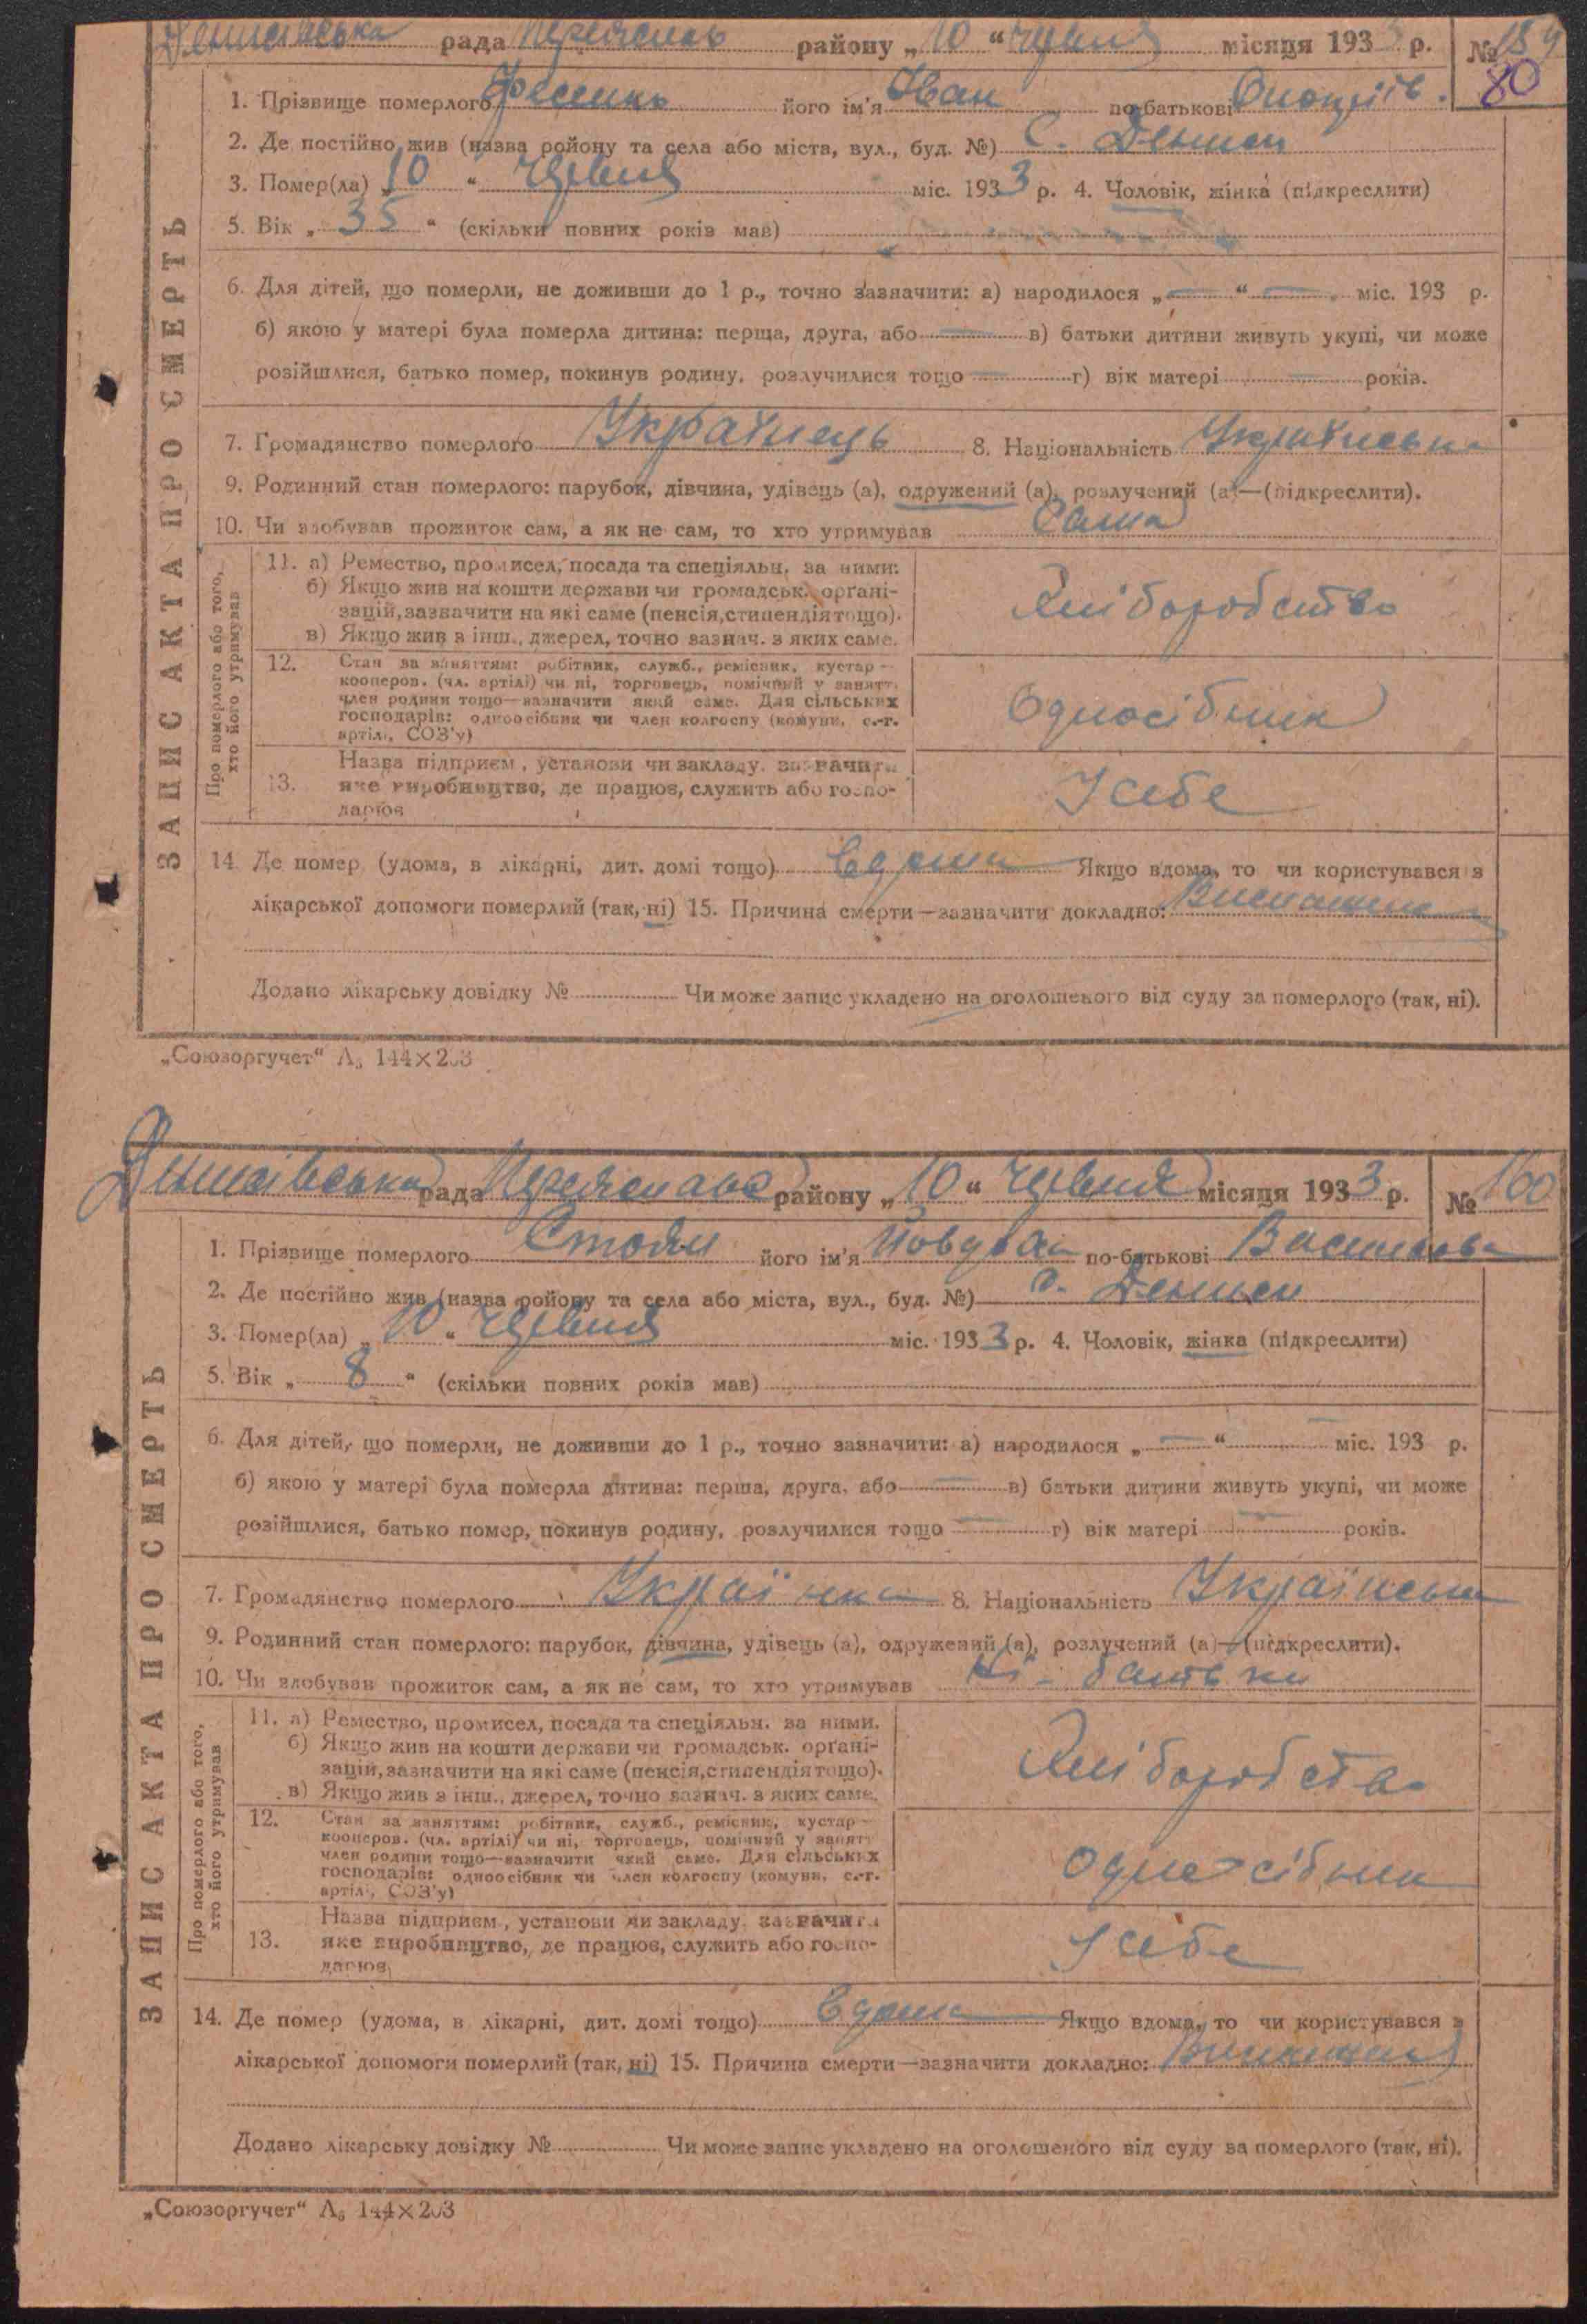 Денисівська рада Переяслав району „10“ Червня місяця 1933 р. № 159
80
1. Прізвище померлого Фесенко його ім'я Іван по-батькові
2. Де постійно жив (назва району та села або міста, вул., буд. №) С. Дениси
3. Помер(ла) „10“ Червня міс. 1933 р. 4. Чоловік, жінка (підкреслити)
5. Вік „35“ (скільки повних років мав)
6. Для дітей, що померли, не доживши до 1 р., точно зазначити: а) народилося „—“ — міс. 193 р.
б) якою у матері була померла дитина: перша, друга, або — в) батьки дитини живуть укупі, чи може
розійшлися, батько помер, покинув родину, розлучилися тощо — г) вік матері — років.
7. Громадянство померлого Українець 8. Національність Українська
9. Родинний стан померлого: парубок, дівчина, удівець (а), одружений (а), розлучений (а)—(підкреслити).
10. Чи здобував прожиток сам, а як не сам, то хто утримував Сам
ЗАПИС АКТА ПРО СМЕРТЬ
Про померлого або того, хто його утримував
11. а) Ремество, промисел, посада та спеціяльн. за ними:
б) Якщо жив на кошти держави чи громадськ. орґані-
зацій, зазначити на які саме (пенсія, стипендія тощо).
в) Якщо жив з інш., джерел, точно зазнач. з яких саме.
Хліборобство
12. Стан за заняттям: робітник, служб., ремісник, кустар—
кооперов. (чл. артілі) чи ні, торговець, помічний у занятт.
член родини тощо—зазначити який саме. Для сільських
господарів: одноосібник чи член колгоспу (комуни, с.-г.
артілі, СОЗ'у)
Односібник
13. Назва підприєм., установи чи закладу. зазначити
яке виробництво, де працює, служить або госпо-
дарює
У себе
14. Де помер (удома, в лікарні, дит. домі тощо) Вдома Якщо вдома, то чи користувався з
лікарської допомоги померлий (так, ні) 15. Причина смерти—зазначити докладно: Виснаження
Додано лікарську довідку № Чи може запис укладено на оголошеного від суду за померлого (так, ні).
„Союзоргучет“ Л. 144×203
Денисівська рада Переяслав району „10“ Червня місяця 1933 р. № 160
1. Прізвище померлого Стоян його ім'я Явдоха по-батькові Васильова
2. Де постійно жив (назва району та села або міста, вул., буд. №) С. Дениси
3. Помер(ла) „10“ Червня міс. 1933 р. 4. Чоловік, жінка (підкреслити)
5. Вік „8“ (скільки повних років мав)
6. Для дітей, що померли, не доживши до 1 р., точно зазначити: а) народилося „—“ — міс. 193 р.
б) якою у матері була померла дитина: перша, друга, або — в) батьки дитини живуть укупі, чи може
розійшлися, батько помер, покинув родину, розлучилися тощо — г) вік матері — років.
7. Громадянство померлого Українка 8. Національність Українська
9. Родинний стан померлого: парубок, дівчина, удівець (а), одружений (а), розлучений (а)—(підкреслити).
10. Чи здобував прожиток сам, а як не сам, то хто утримував Ні - батьки
ЗАПИС АКТА ПРО СМЕРТЬ
Про померлого або того, хто його утримував
11. а) Ремество, промисел, посада та спеціяльн. за ними.
б) Якщо жив на кошти держави чи громадськ. орґані-
зацій, зазначити на які саме (пенсія, стипендія тощо).
в) Якщо жив з інш., джерел, точно зазнач. з яких саме.
Хліборобство
12. Стан за заняттям: робітник, служб., ремісник, кустар—
кооперов. (чл. артілі) чи ні, торговець, помічний у занятт
член родини тощо—зазначити який саме. Для сільських
господарів: одноосібник чи член колгоспу (комуни, с.-г.
артілі, СОЗ'у)
Одноосібник
13. Назва підприєм., установи чи закладу. зазначити
яке виробництво, де працює, служить або госпо-
дарює
У себе
14. Де помер (удома, в лікарні, дит. домі тощо) Вдома Якщо вдома, то чи користувався з
лікарської допомоги померлий (так, ні) 15. Причина смерти—зазначити докладно: Виснаження
Додано лікарську довідку № Чи може запис укладено на оголошеного від суду за померлого (так, ні).
„Союзоргучет“ Л. 144×203